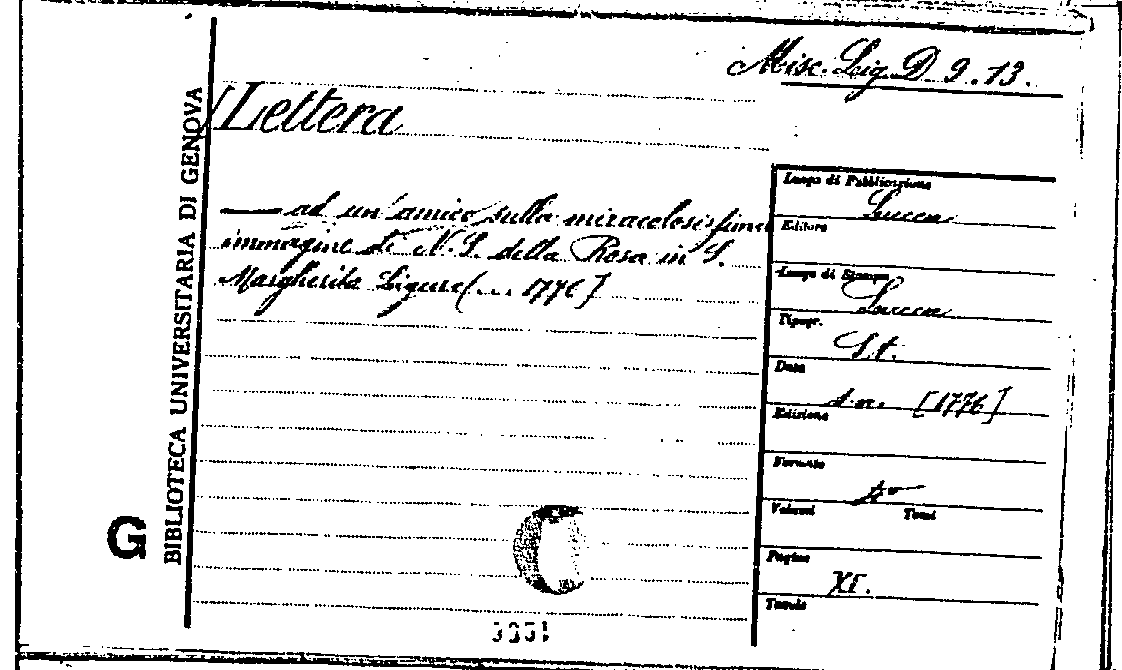 Misc. Lig. D. 9. 13.
Lettera
— ad un'amico sulla miracolosissima
immagine di N. S. della Rosa in S.
Margherita Ligure (... 1776]
BIBLIOTECA UNIVERSITARIA DI GENOVA
G
Luogo di Pubblicazione
Lucca
Editore
Luogo di Stampa
Lucca
Tipogr.
S. t.
Data
s. a. [1776]
Edizione
Formato
Volumi Tomi
Pagine
XI.
Tavole